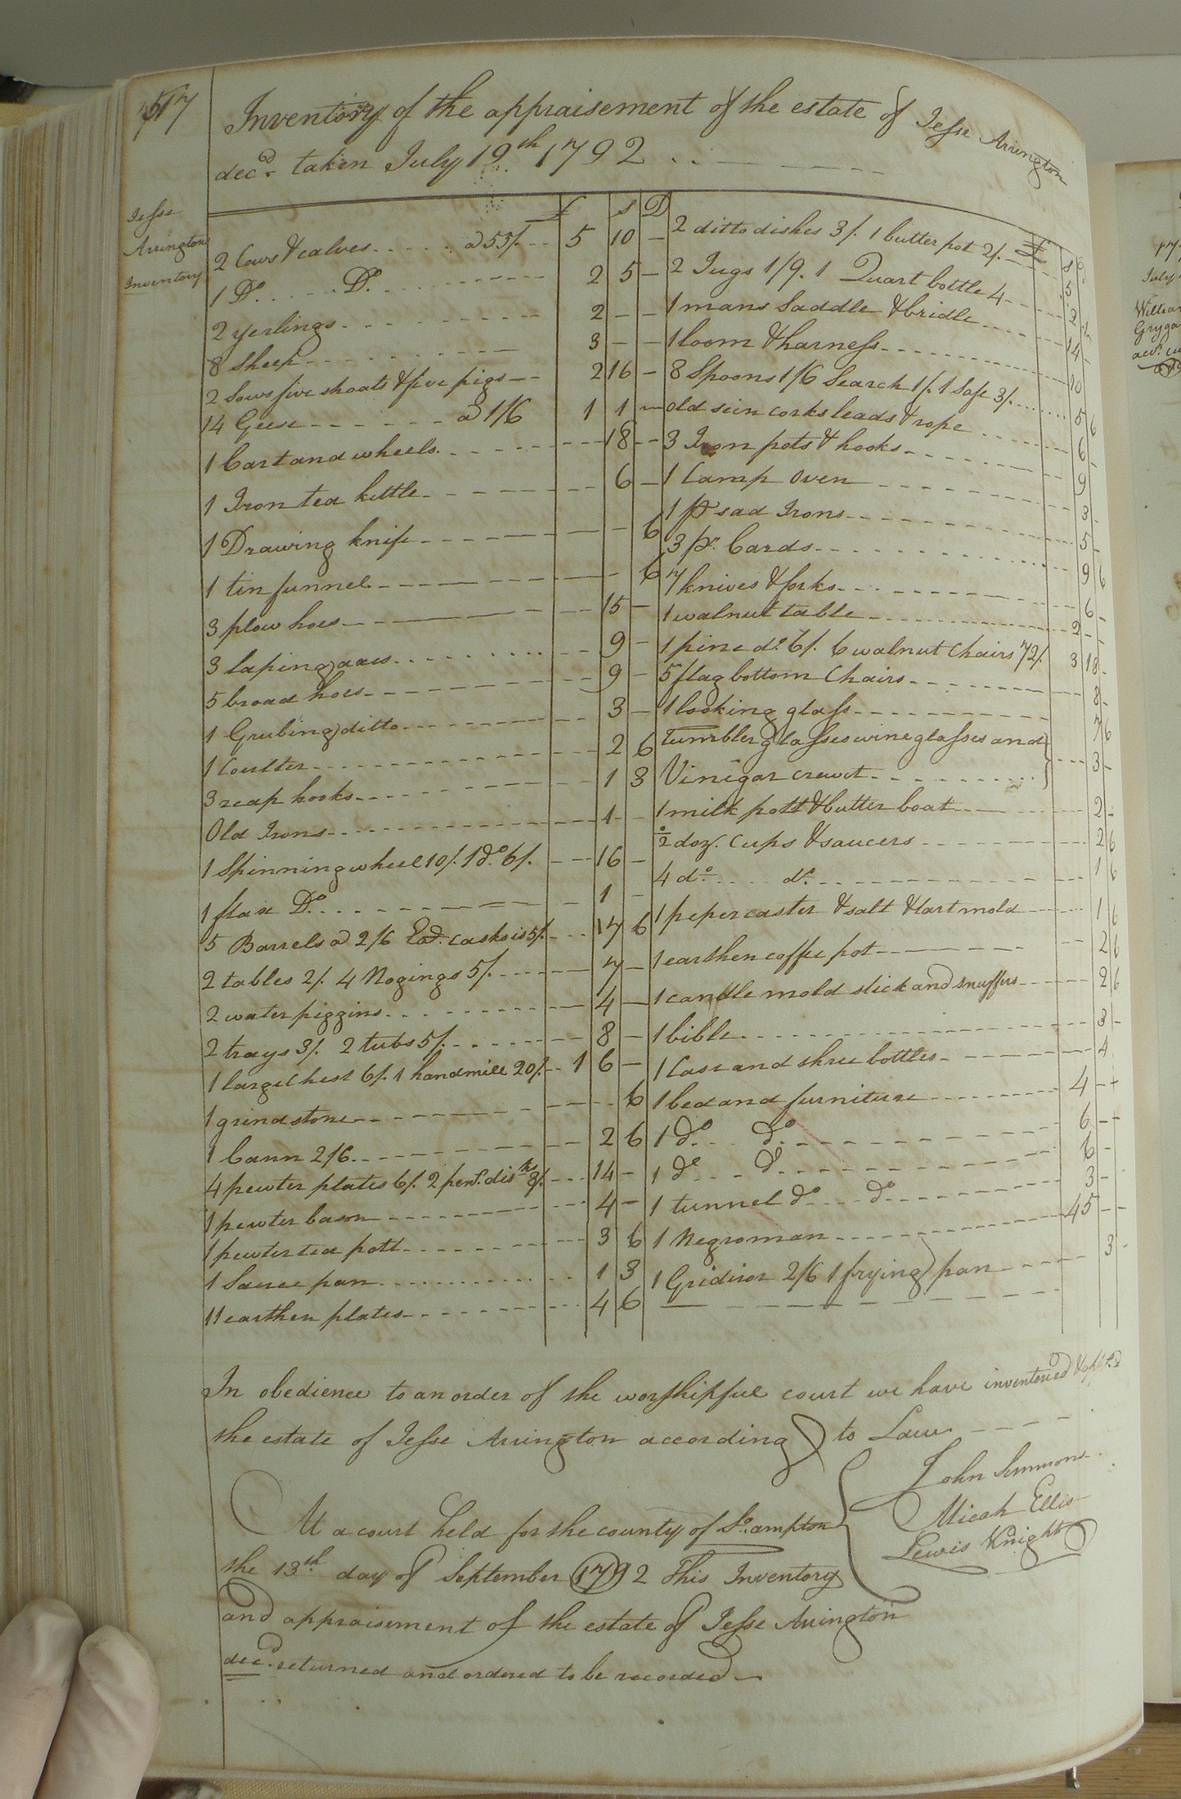 517
Inventory of the appraisement of the estate of Jesse Arrington
decd. taken July 19th 1792
Jesse
Arrington
Inventory
£ s D
2 Cows & calves a 55/. 5 10 —
1 Do. Do. 2 5 —
2 yerlings 2 — —
8 Sheep 3 — —
2 Sows five shoats & five pigs 2 16 —
14 Geese a 1/6 1 1 —
1 Cart and wheels 18 —
1 Iron tea kittle 6 —
1 Drawing knife 6
1 tin funnel 6
3 plow hoes 15 —
3 laping axes 9 —
5 broad hoes 9 —
1 Grubing ditto 3 —
1 Coulter 2 6
3 reap hooks 1 3
Old Irons 1 —
1 Spinning wheel 10/. 1 do. 6/. 16 —
1 flax Do. 1 —
5 Barrels a 2/6 casks is 5/. 17 6
2 tables 2/. 4 Nogings 5/. 7 —
2 water piggins 4 —
2 trays 3/. 2 tubs 5/. 8 —
1 large Chest 6/. 1 handmill 20/. 1 6 —
1 grindstone 6
1 Cann 2/6 2 6
4 pewter plates 6/. 2 pewt. dishs 8/. 14 —
1 pewter bason 4 —
1 pewter tea pott 3 6
1 Sauce pan 1 3
11 earthen plates 4 6
£ s D
2 ditto dishes 3/. 1 butter pot 2/. 5
2 Jugs 1/9. 1 Quart bottle 4 2 1
1 mans Saddle & bridle 14
1 loom & harness 10
8 Spoons 1/6 Search 1/. 1 Safe 3/. 5 6
old sein corks leads & rope 6 —
3 Iron pots & hooks 9
1 Camp Oven 3 —
1 pr sad Irons 5 —
3 pr. Cards 9 6
7 knives & forks 6 —
1 walnut table 2 — —
1 pine do. 6/. 6 walnut Chairs 72/. 3 18 —
5 flag bottom Chairs 8 —
1 looking glass 7 6
tumbler glasses wine glasses and
Vinigar crewit 3 —
1 milk pott & butter boat 2 —
½ doz. Cups & saucers 2 6
4 do. do. 1 6
1 peper caster & salt & tart mold 1 6
1 earthen coffee pot 2 6
1 candle mold stick and snuffers 2 6
1 bible 3 —
1 Case and three bottles 4
1 bed and furniture 4 — +
1 do. do. 6 — —
1 do do. 6 —
1 tunnel do do. 3 —
1 Negro man 45 — —
1 Gridiron 2/6 1 frying pan 3 —
In obedience to an order of the worshipful court we have inventoried & apprd
the estate of Jesse Arrington according to Law
John Simmons
Micah Ellis
Lewis Knight
At a court held for the county of So.ampton
the 13th day of September 1792 This Inventory
and appraisement of the estate of Jesse Arington
decd. returned and ordered to be recorded
July